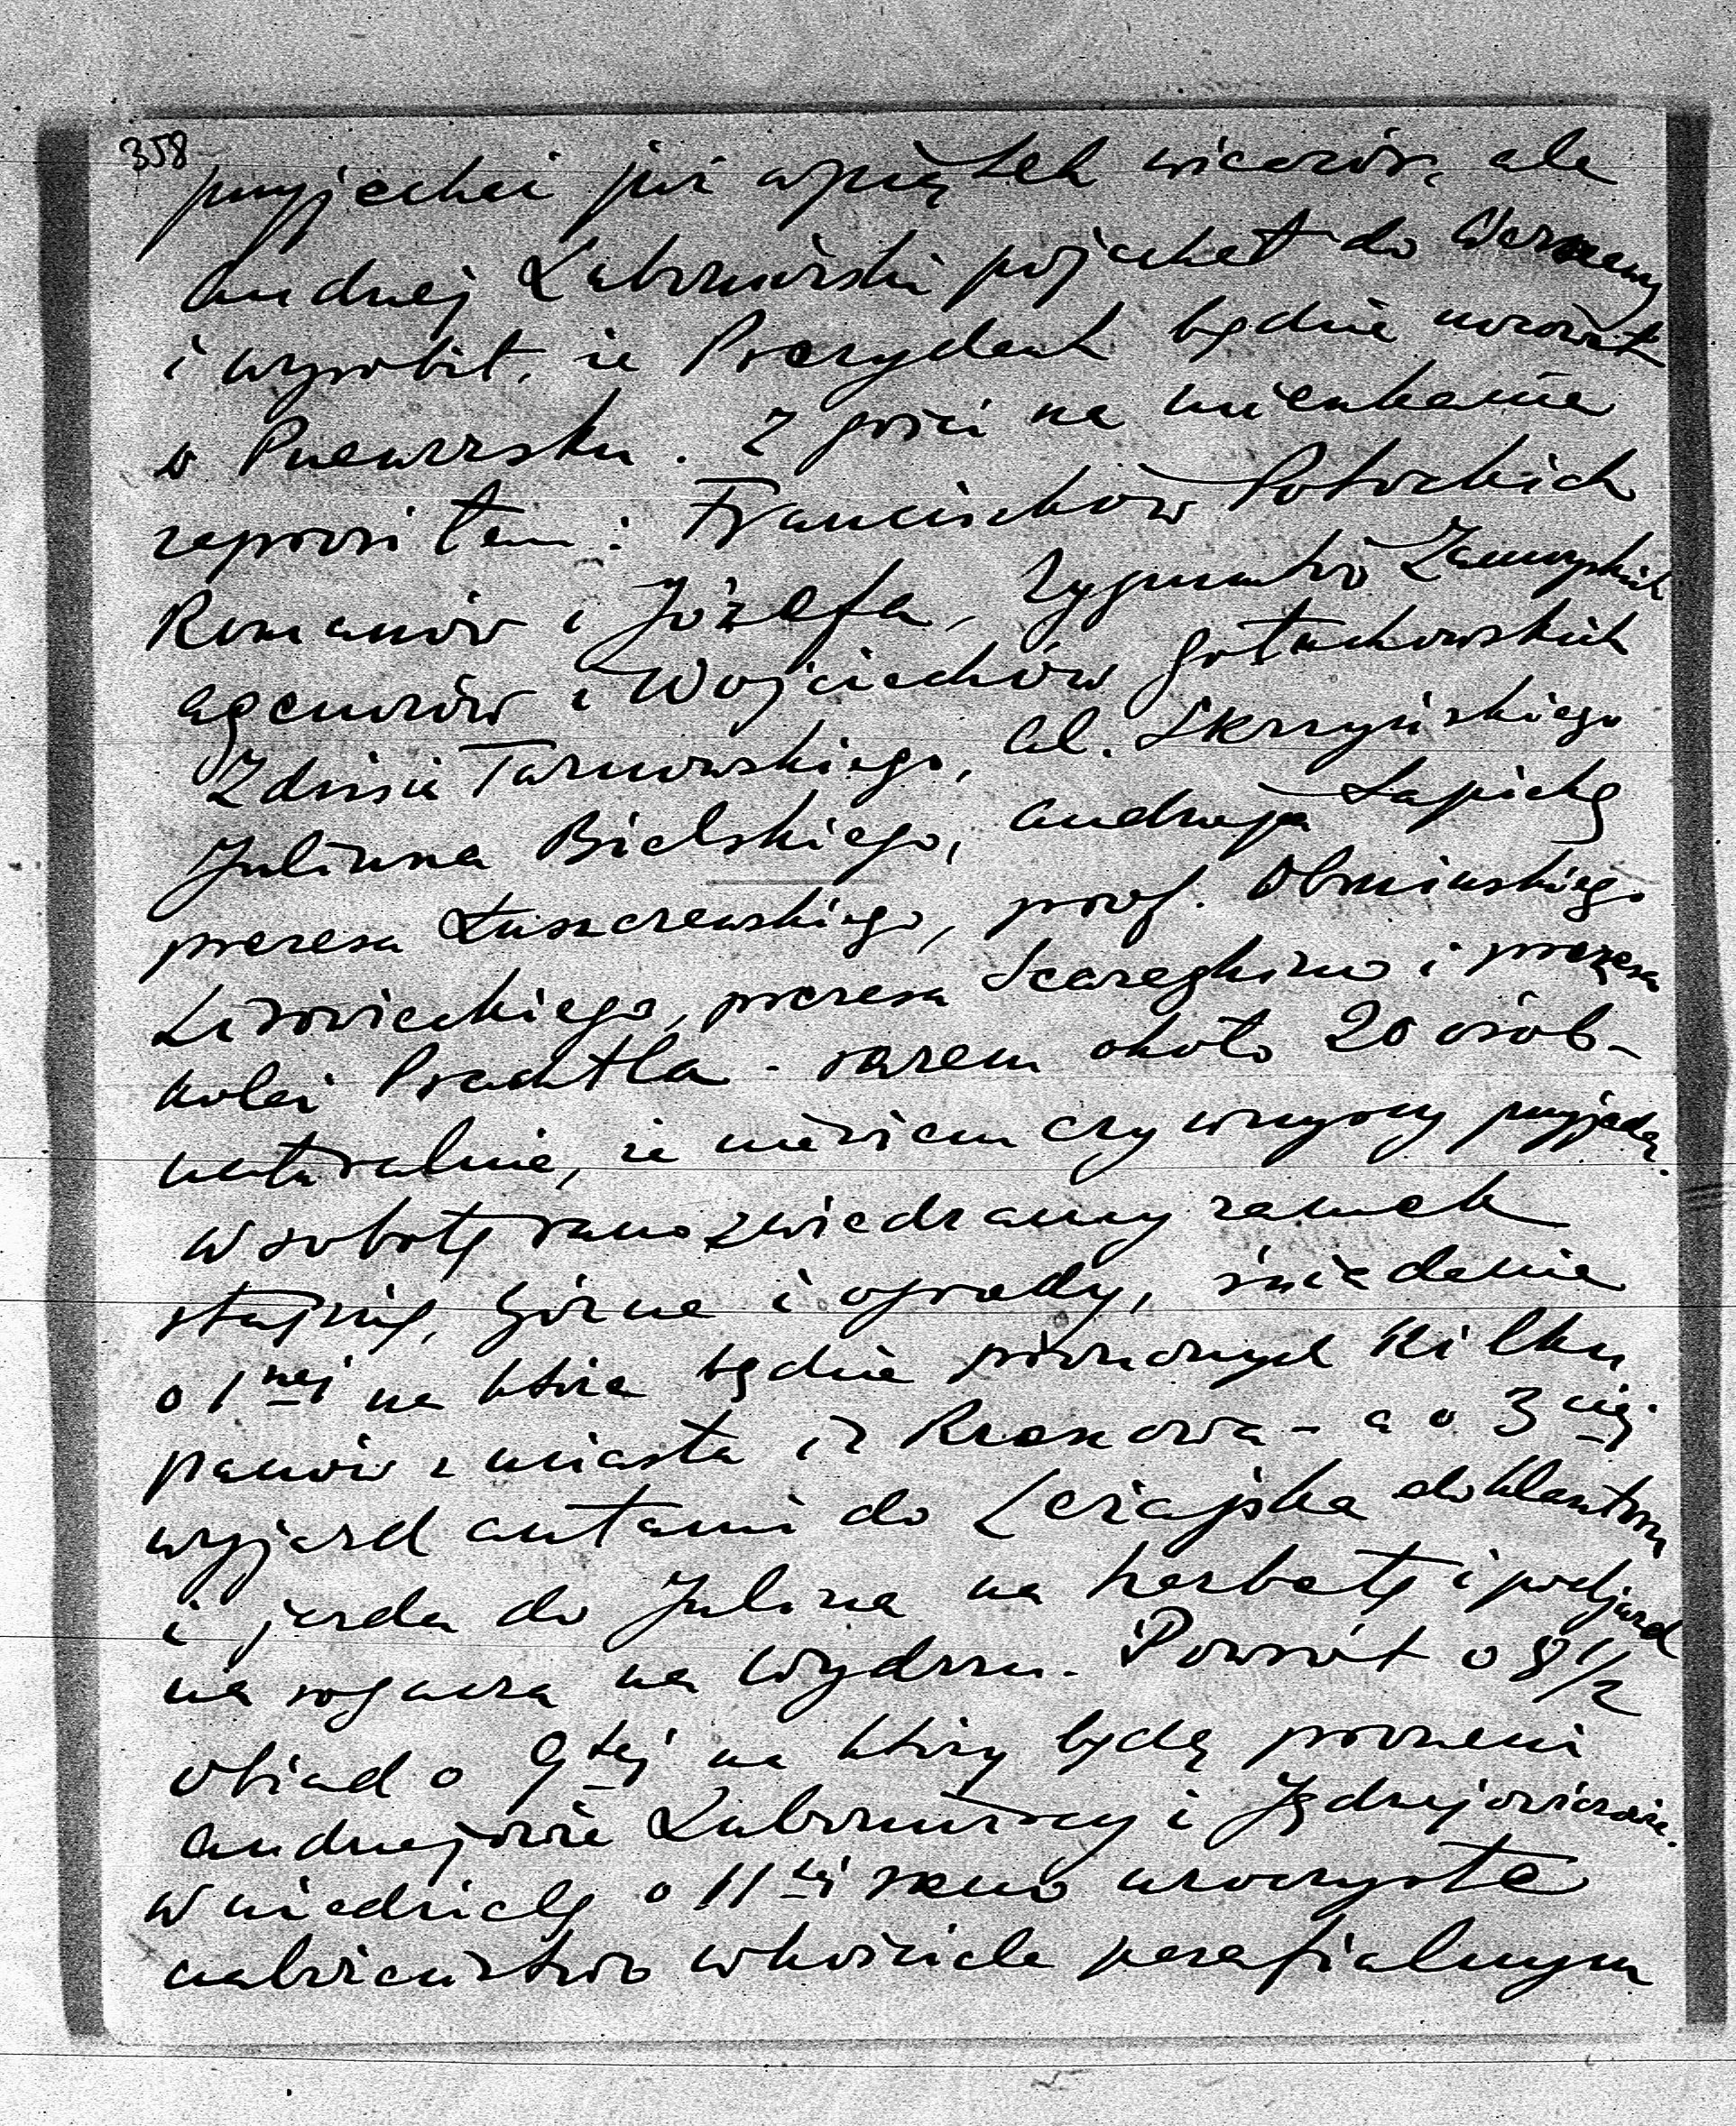 358
przyjechać już w piątek wieczór, ale
Andrzej Lubomirski pojechał do Warszawy
i wyrobił, że Prezydent będzie nocował
w Przeworsku. Z gości na mieszkanie
zaprosiłem: Franciszków Potockich
Romanów i Józefa, Zygmuntów Zamoyskich
Agenorów i Wojciechów Gołuchowskich
Zdzisia Tarnowskiego, Al. Skrzyńskiego
Juliusza Bielskiego, Andrzeja Sapiehę
prezesa Łuszczewskiego, prof. Obmińskiego
Lisowieckiego, prezesa Scazeghino i prezesa
kolei Prachtla - razem około 20 osób -
naturalnie, że nie wiem czy wszyscy przyjadą.
W sobotę rano zwiedzamy zamek
stajnię, Górne i ogrody, śniadanie
o 1nej na które będzie proszonych kilku
panów z miasta i z Rzeszowa - a o 3ciej
wyjazd autami do Leżajska do klasztoru
i jazda do Julina na herbatę i podjazd
na rogacza na Wydrzu. Powrót o 8 1/2
obiad o 9tej na który będą proszeni
Andrzejowie Lubomirscy i Jędrzejowiczowie.
W niedzielę o 11tej rano uroczyste
nabożeństwo w kościele parafialnym